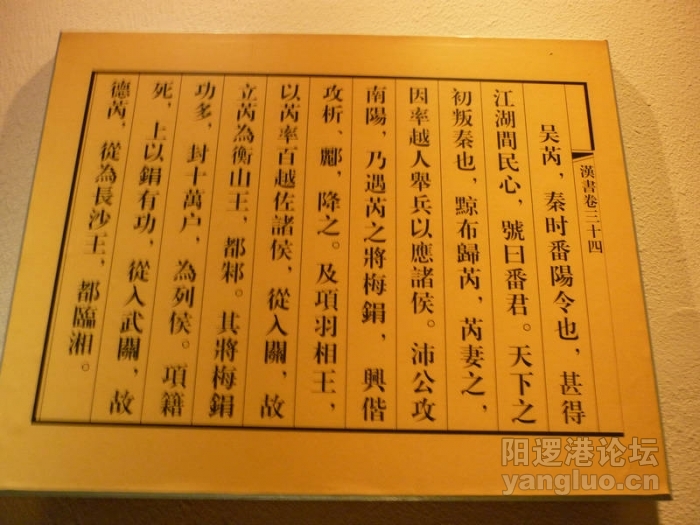 漢書卷三十四
吴芮，秦时番陽令也，甚得
江湖間民心，號曰番君。天下之
初叛秦也，黥布歸芮，芮妻之，
因率越人舉兵以應諸侯。沛公攻
南陽，乃遇芮之將梅鋗，興偕
攻析、酈，降之。及項羽相王，
以芮率百越佐諸侯，從入關，故
立芮為衡山王，都邾。其將梅鋗
功多，封十萬户，為列侯。項籍
死，上以鋗有功，從入武關，故
德芮，從為長沙王，都臨湘。
阳逻港论坛
yangluo.com.cn